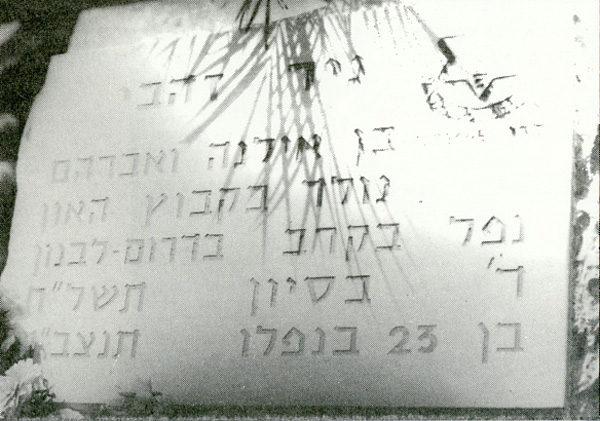 בן אילנה ואברהם
נולד בקבוץ האון
נפל בקרב בדרום-לבנון
ד' בסיון תשל"ח
בן 23 בנפלו תנצב"ה